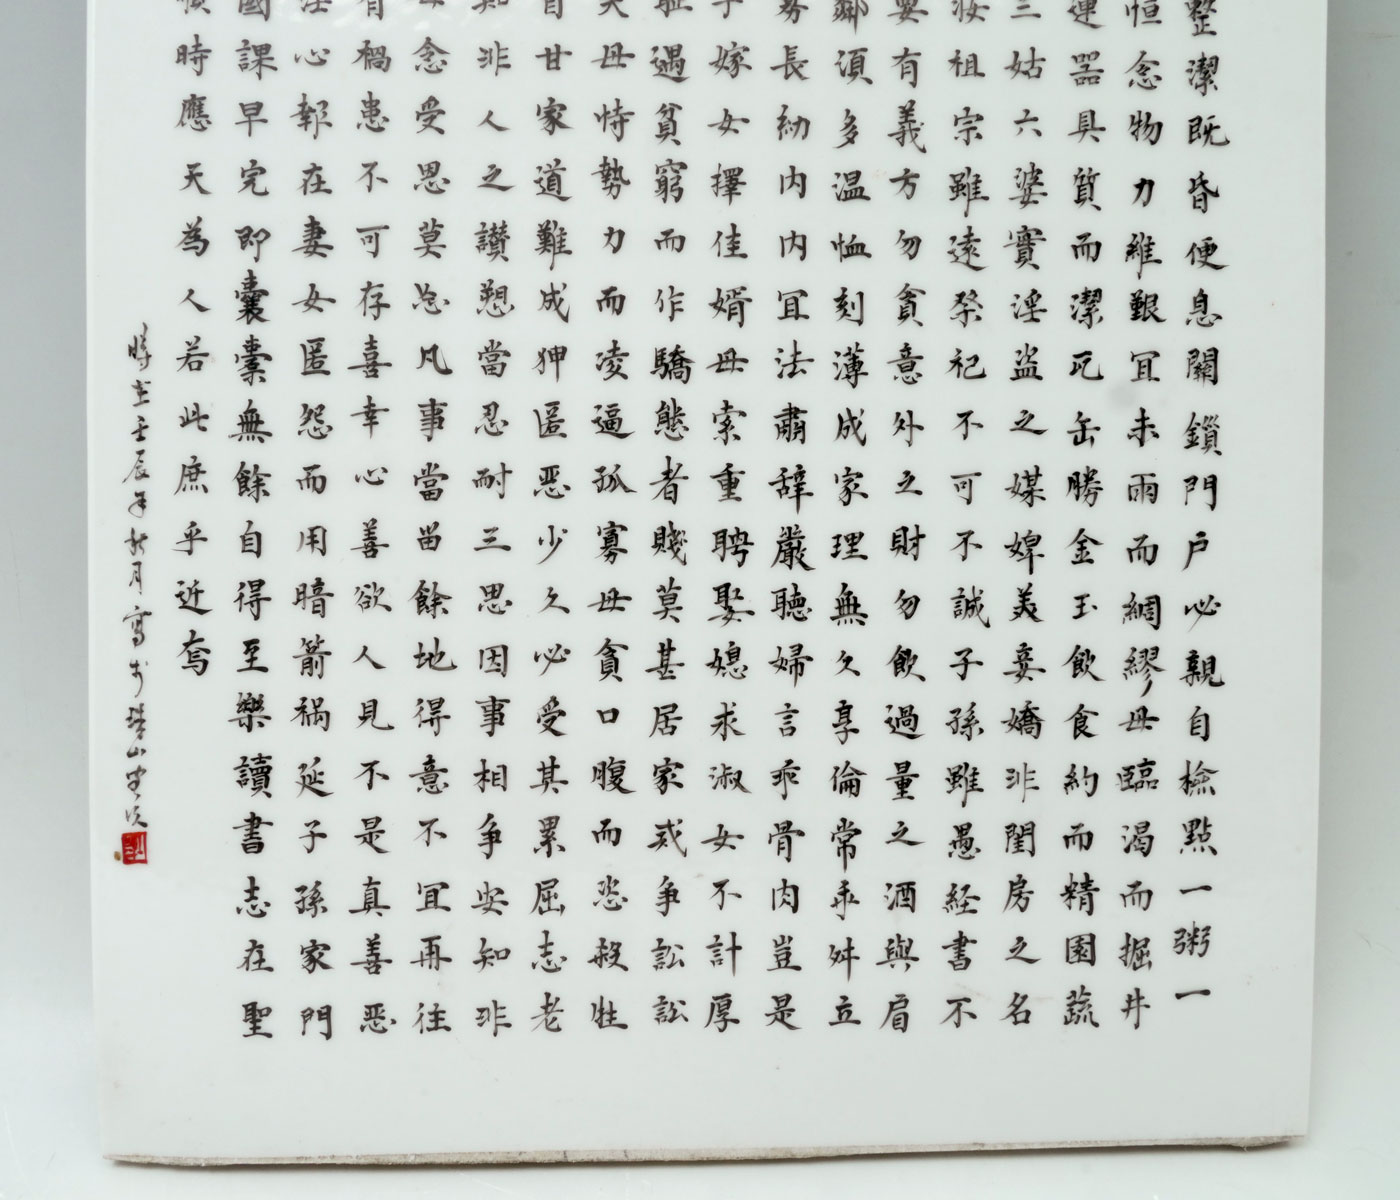 整潔既昏便息關鎖門户必親自檢點一粥一
恒念物力維艱宜未雨而綢繆毋臨渴而掘井
具質而潔瓦缶勝金玉飲食約而精園蔬
三姑六婆實淫盗之媒婢美妾嬌非閨房之名
妝祖宗雖遠祭祀不可不誠子孫雖愚経書不
要有義方勿貪意外之財勿飲過量之酒與肩
鄰須多温恤刻薄成家理無久享倫常乖舛立
寡長幼内内宜法肅辞嚴聽婦言乖骨肉豈是
子嫁女擇佳婿毋索重聘娶媳求淑女不計厚
恥遇貧窮而作驕態者賤莫甚居家戒爭訟訟
毋恃勢力而凌逼孤寡毋貪口腹而恣殺牲
自甘家道難成狎匿恶少久必受其累屈志老
知非人之讃愬當忍耐三思因事相争安知非
念受恩莫忘凡事當留餘地得意不宜再往
有禍患不可存喜幸心善欲人見不是真善恶
心報在妻女匿怨而用暗箭禍延子孫家門
國課早完即囊橐無餘自得至樂讀書志在聖
時應天為人若此庶乎近焉
時在壬辰年秋月寫於珠山